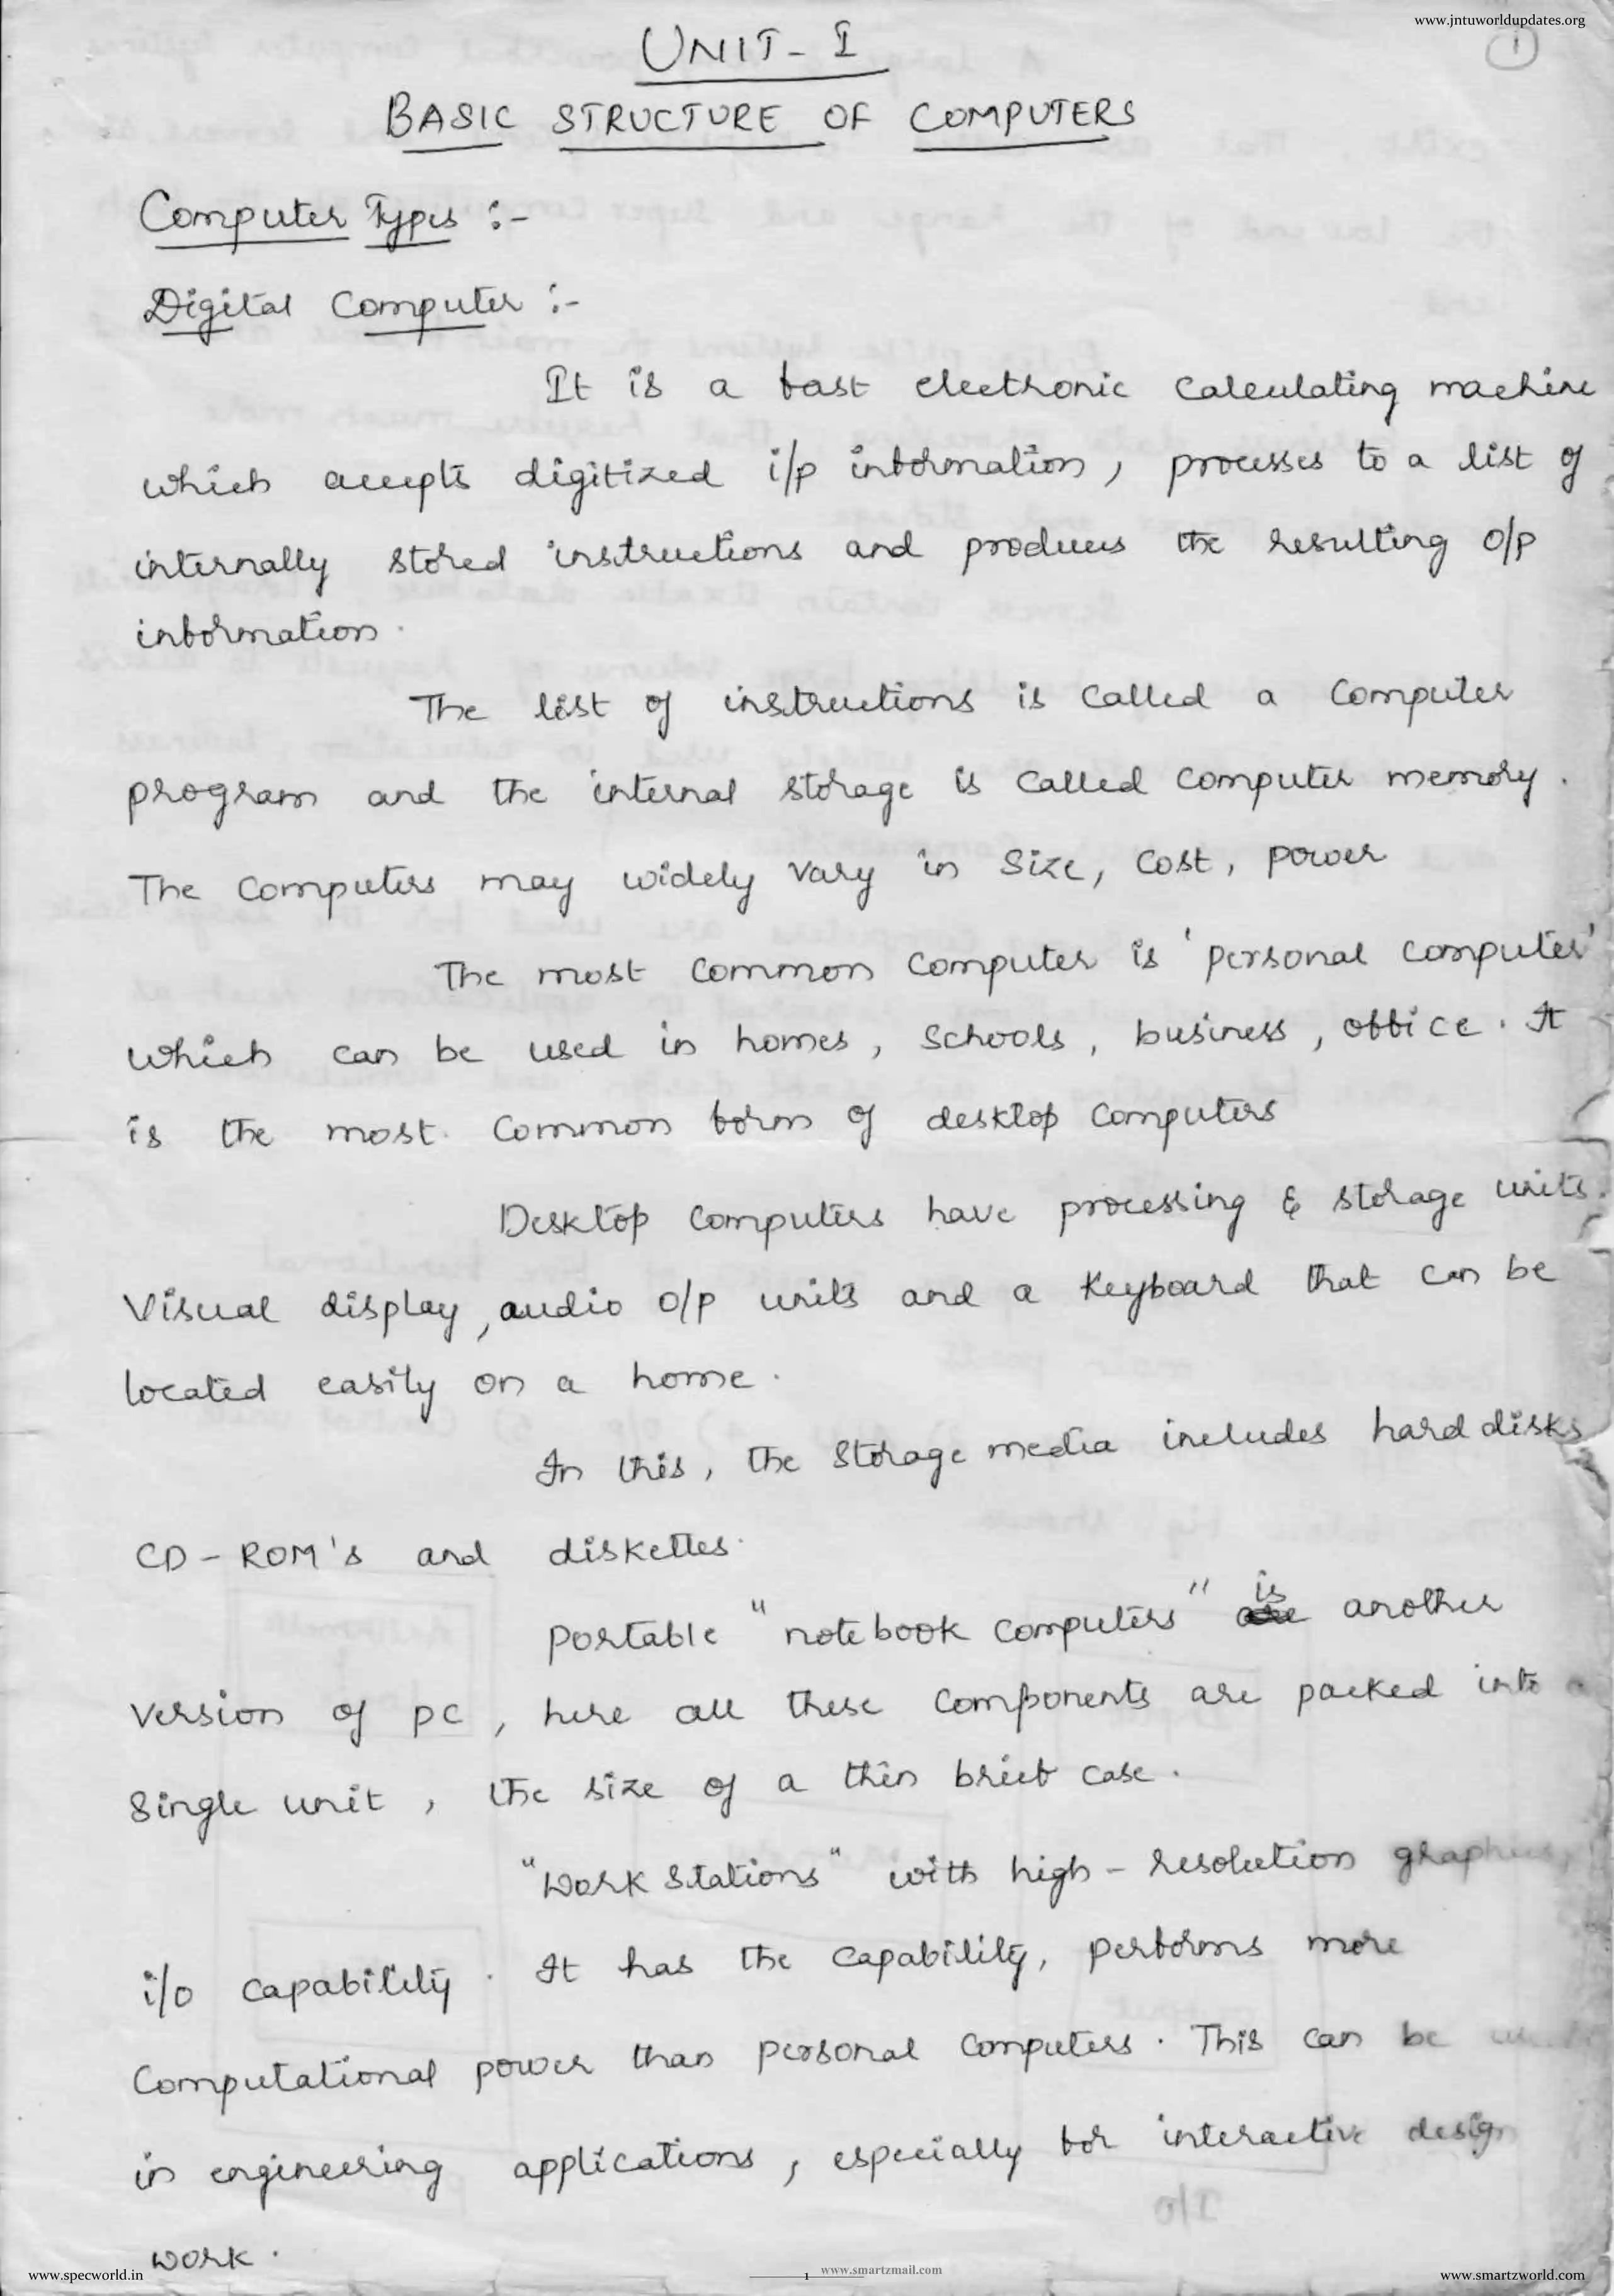 www.jntuworldupdates.org
1
UNIT - I
BASIC STRUCTURE OF COMPUTERS
Computer Types :-
Digital Computer :-
It is a fast electronic calculating machine
which accepts digitized i/p information, processes to a list of
internally stored instructions and produces the resulting o/p
information.
The list of instructions is called a computer
program and the internal storage is called computer memory.
The computers may widely vary in size, cost, power
The most common computer is 'personal computer'
which can be used in homes, schools, business, office. It
is the most common form of desktop computers
Desktop computers have processing & storage units,
visual display, audio o/p units and a keyboard that can be
located easily on a home.
In this, the storage media includes hard disks
CD-ROM's and diskettes.
portable "notebook computers" is another
version of pc, here all these components are packed into a
single unit, the size of a thin brief case.
"Work stations" with high-resolution graphics,
i/o capability. It has the capability, performs more
computational power than personal computers. This can be
in engineering applications, especially for interactive design
work.
www.specworld.in
1
www.smartzmail.com
www.smartzworld.com